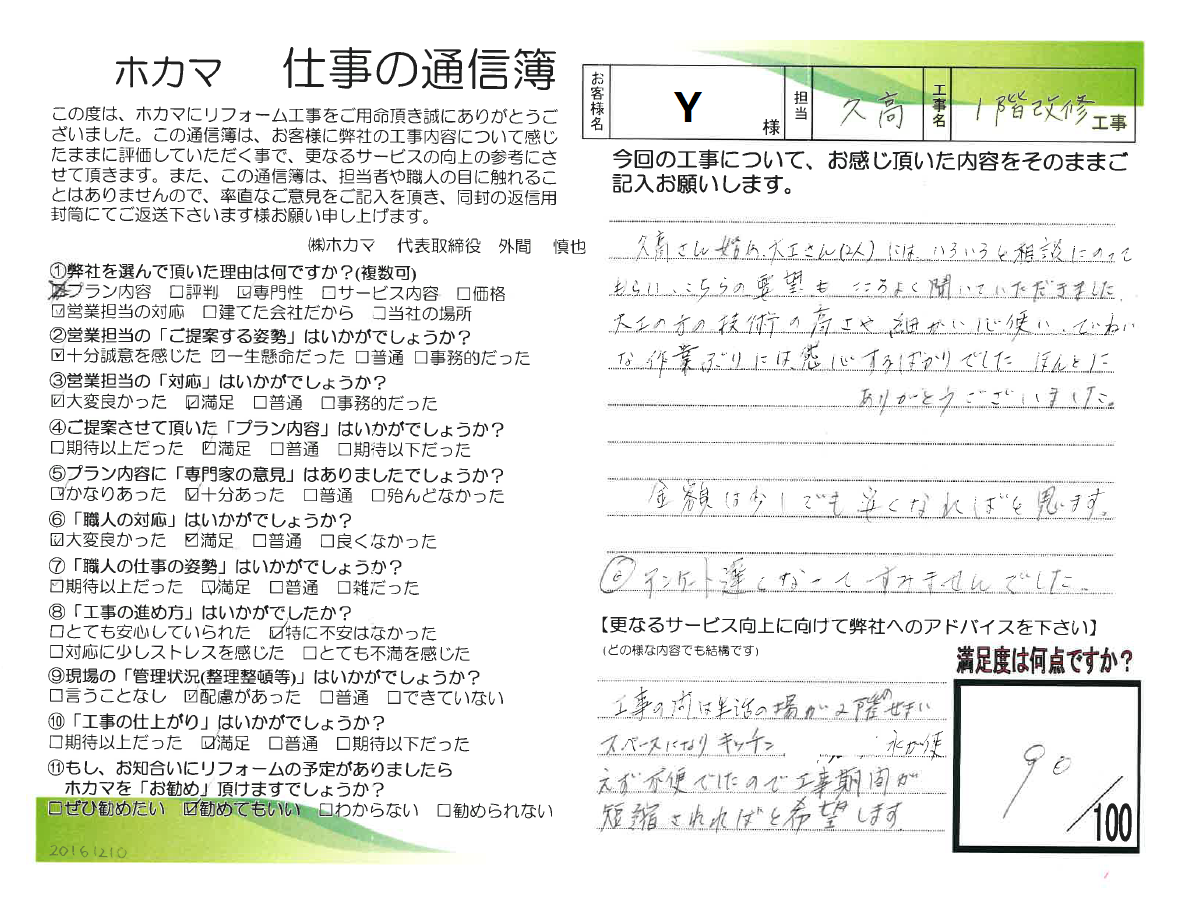 ホカマ 仕事の通信簿
この度は、ホカマにリフォーム工事をご用命頂き誠にありがとうご
ざいました。この通信簿は、お客様に弊社の工事内容について感じ
たままに評価していただく事で、更なるサービスの向上の参考にさ
せて頂きます。また、この通信簿は、担当者や職人の目に触れるこ
とはありませんので、率直なご意見をご記入を頂き、同封の返信用
封筒にてご返送下さいます様お願い申し上げます。
㈱ホカマ 代表取締役 外間 慎也
①弊社を選んで頂いた理由は何ですか?(複数可)
☑プラン内容 □評判 ☑専門性 □サービス内容 □価格
☑営業担当の対応 □建てた会社だから □当社の場所
②営業担当の「ご提案する姿勢」はいかがでしょうか?
☑十分誠意を感じた ☑一生懸命だった □普通 □事務的だった
③営業担当の「対応」はいかがでしょうか?
☑大変良かった ☑満足 □普通 □事務的だった
④ご提案させて頂いた「プラン内容」はいかがでしょうか?
□期待以上だった ☑満足 □普通 □期待以下だった
⑤プラン内容に「専門家の意見」はありましたでしょうか?
☑かなりあった ☑十分あった □普通 □殆んどなかった
⑥「職人の対応」はいかがでしょうか?
☑大変良かった ☑満足 □普通 □良くなかった
⑦「職人の仕事の姿勢」はいかがでしょうか?
☑期待以上だった ☑満足 □普通 □雑だった
⑧「工事の進め方」はいかがでしたか?
□とても安心していられた ☑特に不安はなかった
□対応に少しストレスを感じた □とても不満を感じた
⑨現場の「管理状況(整理整頓等)」はいかがでしょうか?
□言うことなし ☑配慮があった □普通 □できていない
⑩「工事の仕上がり」はいかがでしょうか?
□期待以上だった ☑満足 □普通 □期待以下だった
⑪もし、お知合いにリフォームの予定がありましたら
ホカマを「お勧め」頂けますでしょうか?
□ぜひ勧めたい ☑勧めてもいい □わからない □勧められない
20161210
お客様名 Y 様 担当 久高 工事名 1階改修工事
今回の工事について、お感じ頂いた内容をそのままご
記入お願いします。
久高さん始め、大工さん(2人)には、いろいろと相談にのって
もらい、こちらの要望も こころよく聞いていただきました。
大工の方の技術の高さや 細かい心使い、ていねい
な作業ぶりには感心するばかりでした ほんとに
ありがとうございました。
金額は少しでも安くなればと思います。
アンケート遅くなってすみませんでした。
【更なるサービス向上に向けて弊社へのアドバイスを下さい】
(どの様な内容でも結構です)
満足度は何点ですか?
工事の間は生活の場が2階のせまい
スペースになりキッチン 水が使
えず不便でしたので工事期間が
短縮されればと希望します。
90/100